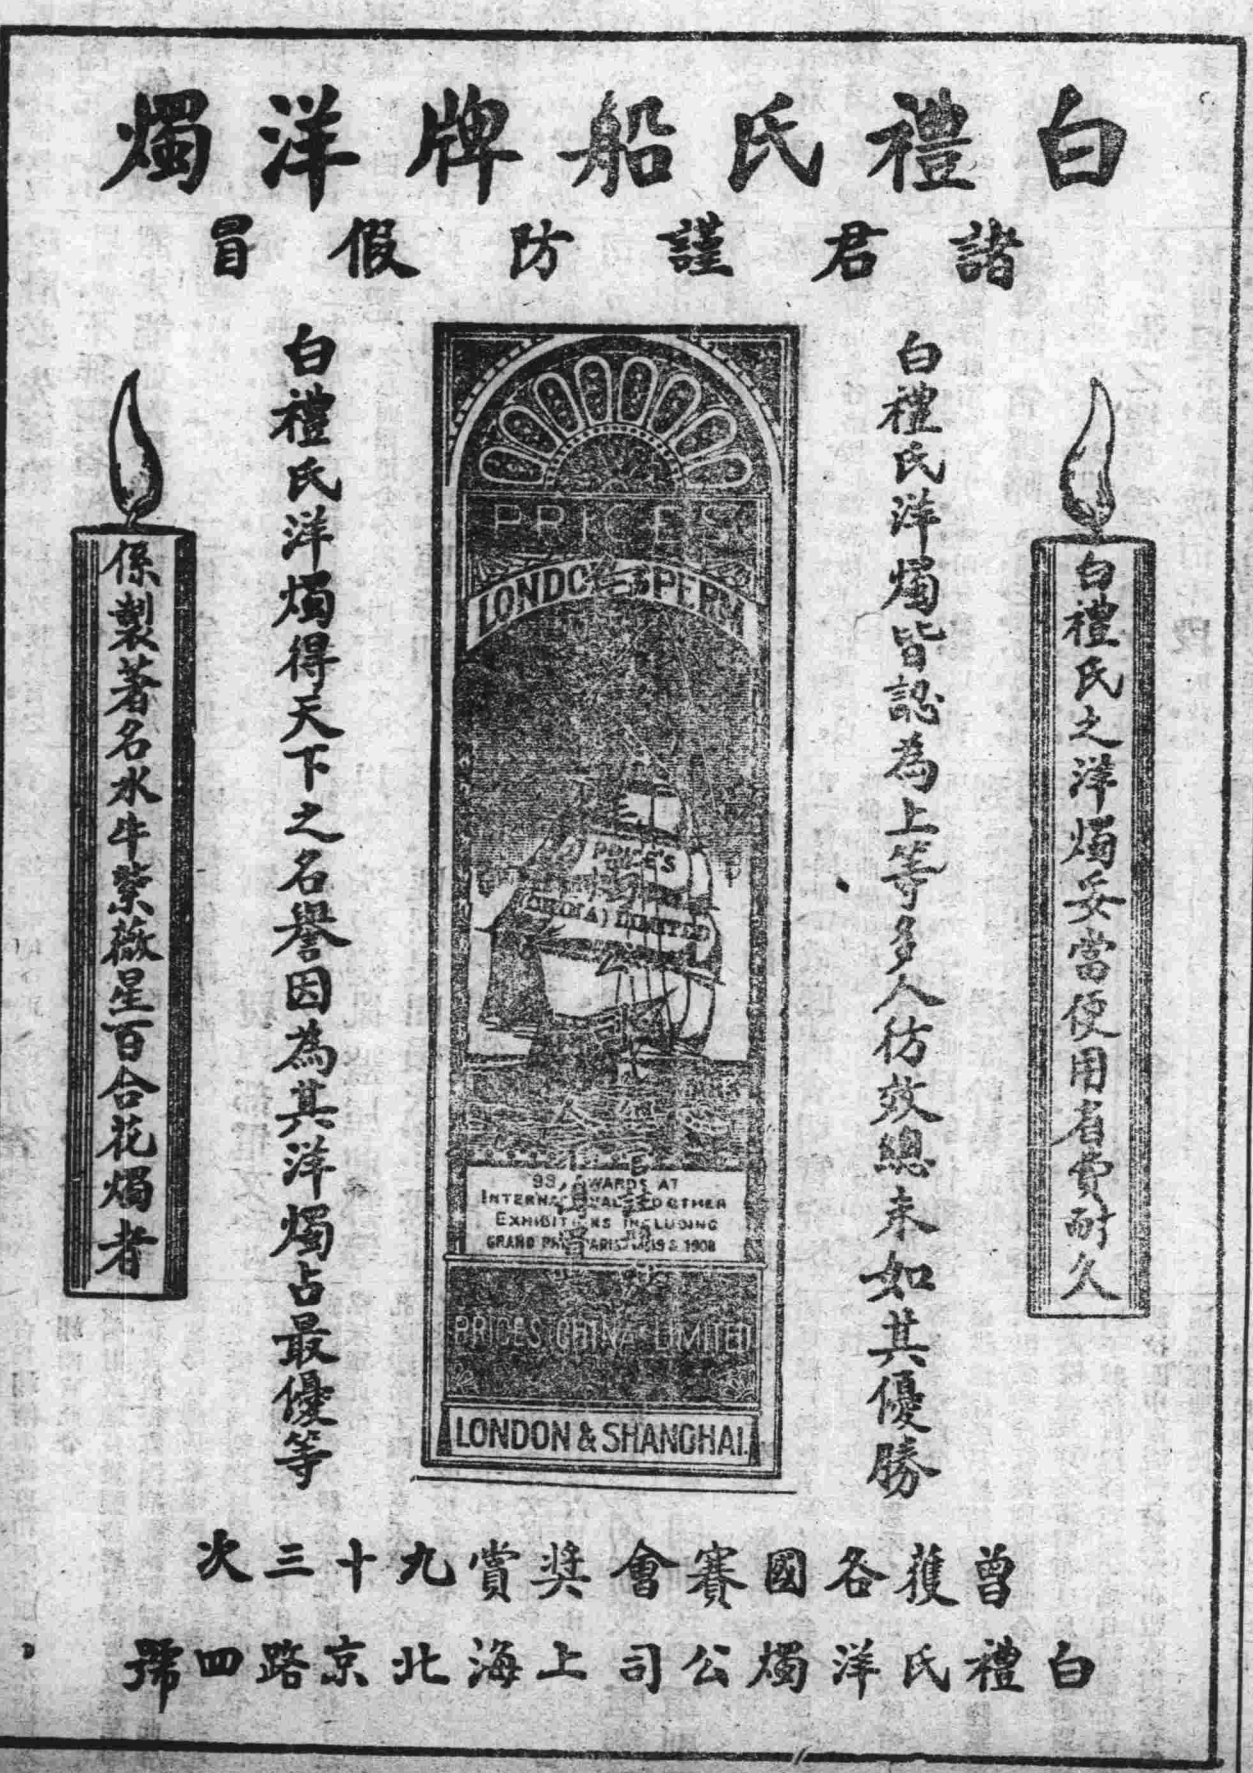 白禮氏船牌洋燭
諸君謹防假冒
白禮氏之洋燭妥當便用省費耐久
白禮氏洋燭皆認為上等多人彷效總未如其優勝
PRICE'S
LONDON SPERM
PRICE'S
(CHINA) LIMITED
93, AWARDS AT
INTERNATIONAL AND OTHER
EXHIBITIONS INCLUDING
GRAND PRIX PARIS
& 1908
PRICES CHINA LIMITED
LONDON & SHANGHAI.
白禮氏洋燭得天下之名譽因為其洋燭占最優等
係製著名水牛紫薇星百合花燭者
曾獲各國賽會獎賞九十三次
白禮氏洋燭公司上海北京路四號